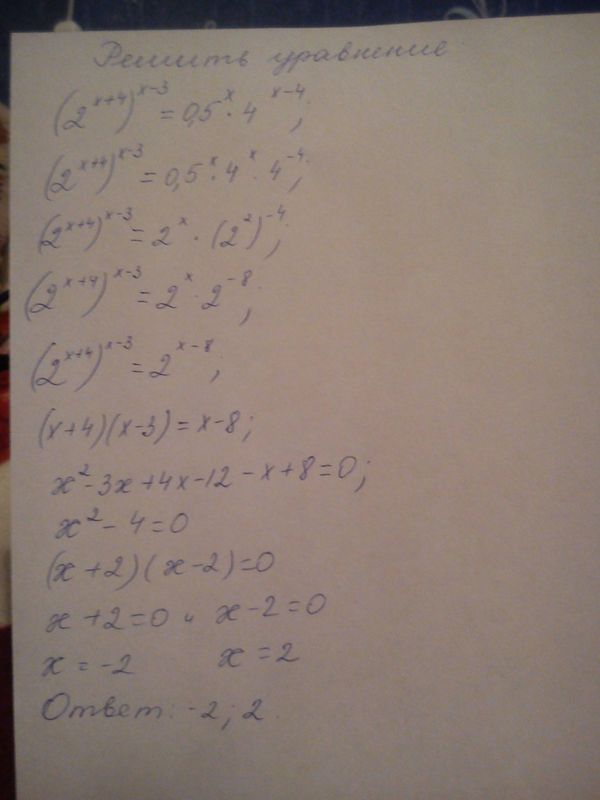 Решить уравнение
(2^(x+4))^(x-3) = 0,5^x · 4^(x-4);
(2^(x+4))^(x-3) = 0,5^x · 4^x · 4^(-4);
(2^(x+4))^(x-3) = 2^x · (2^2)^(-4);
(2^(x+4))^(x-3) = 2^x · 2^(-8);
(2^(x+4))^(x-3) = 2^(x-8);
(x+4)(x-3) = x-8;
x²-3x+4x-12-x+8=0;
x²-4=0
(x+2)(x-2)=0
x+2=0 и x-2=0
x=-2 x=2
Ответ: -2; 2.